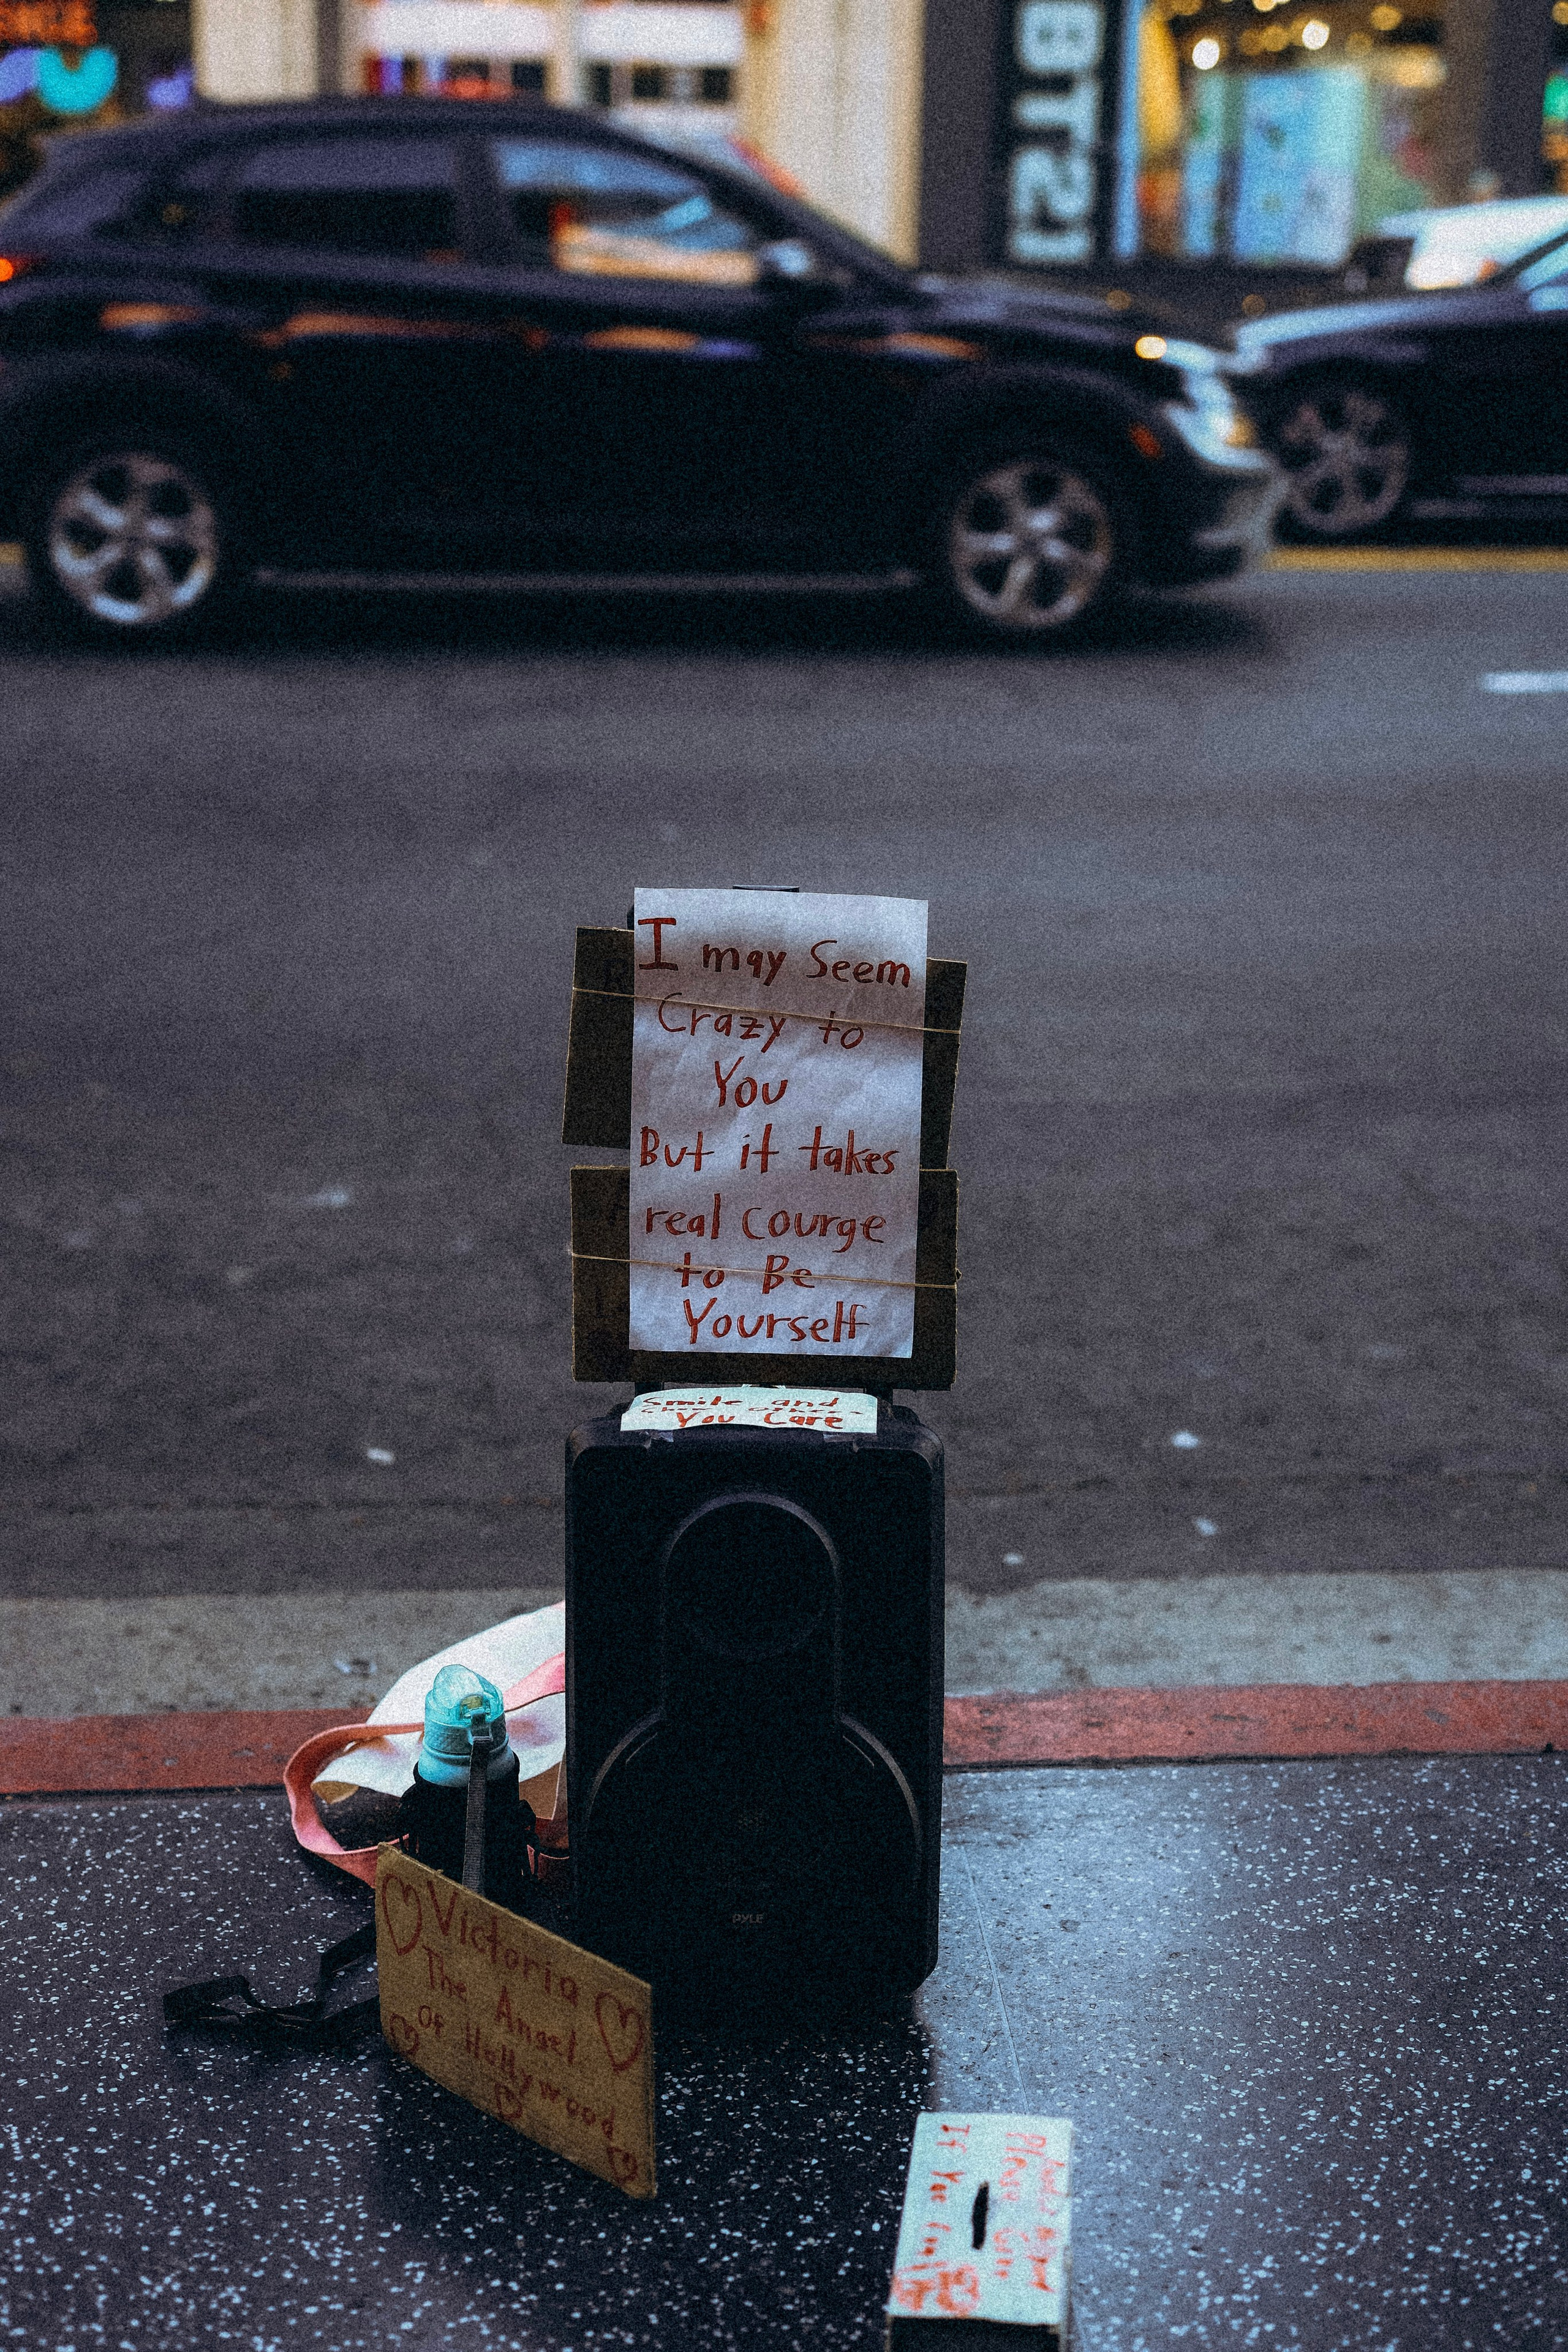 BT21
I may Seem
Crazy to
You
But it takes
real courge
to Be
Yourself
Smile and
You Care
PYLE
Victoria
The Angel
Of Hollywood
Please
If You